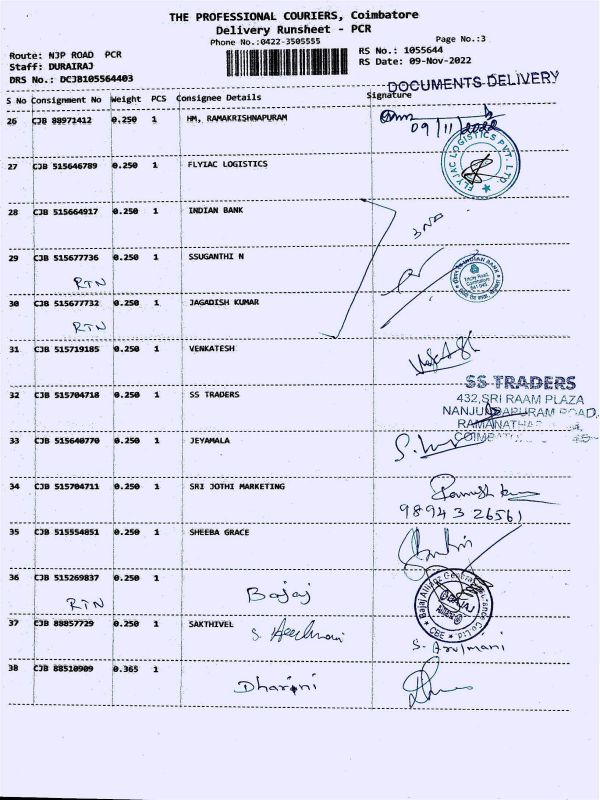 THE PROFESSIONAL COURIERS, Coimbatore
Delivery Runsheet - PCR
Phone No.:0422-3505555
Page No.:3
Route: NJP ROAD PCR
RS No.: 1055644
Staff: DURAIRAJ
RS Date: 09-Nov-2022
DRS No.: DCJB105564403
DOCUMENTS DELIVERY
S No Consignment No Weight PCS Consignee Details Signature
26 CJB 88971412 0.250 1 HM, RAMAKRISHNAPURAM
09/11/2022
FLYJAC LOGISTICS PVT. LTD.
27 CJB 515646789 0.250 1 FLYIAC LOGISTICS
28 CJB 515664917 0.250 1 INDIAN BANK
29 CJB 515677736 0.250 1 SSUGANTHI N
RTN
INDIAN BANK
30 CJB 515677732 0.250 1 JAGADISH KUMAR
RTN
31 CJB 515719185 0.250 1 VENKATESH
SS TRADERS
432,SRI RAAM PLAZA
NANJUNDAPURAM ROAD,
32 CJB 515704718 0.250 1 SS TRADERS
33 CJB 515640770 0.250 1 JEYAMALA
34 CJB 515704711 0.250 1 SRI JOTHI MARKETING
98943 26561
35 CJB 515554851 0.250 1 SHEEBA GRACE
36 CJB 515269837 0.250 1
RTN
Bajaj
Bajaj Allianz General Insurance Co Ltd. CBE
37 CJB 88857729 0.250 1 SAKTHIVEL
S. Arulmani
38 CJB 88510909 0.365 1
Dharini